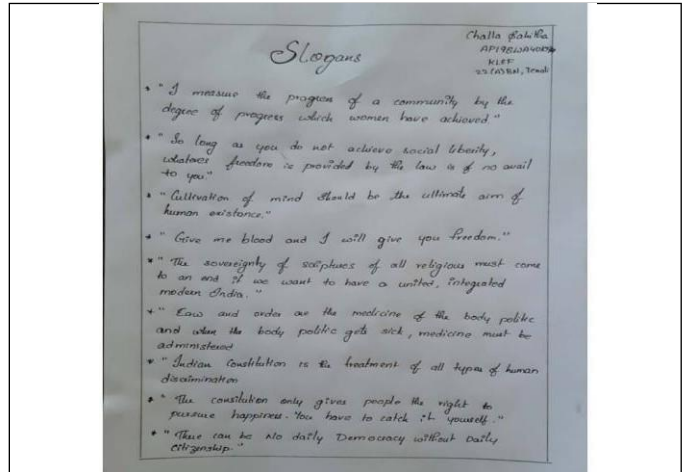 Slogans
Challa
KLEF
* "I measure the progress of a community by the
degree of progress which women have achieved"
* "So long as you do not achieve social liberity,
whatever freedom is provided by the law is of no avail
to you."
* "Cultivation of mind should be the ultimate aim of
human existance."
* "Give me blood and I will give you freedom."
* "The sovereignty of scriptures of all religious must come
to an end if we want to have a united, integrated
modern India."
* "Law and order are the medicine of the body politic
and when the body politic gets sick, medicine must be
administered
* "Indian Constitution is the treatment of all types of human
discrimination
* "The consitution only gives people the right to
pursue happiness. You have to catch it yourself."
* "There can be No daily Democracy without Daily
citizenship."